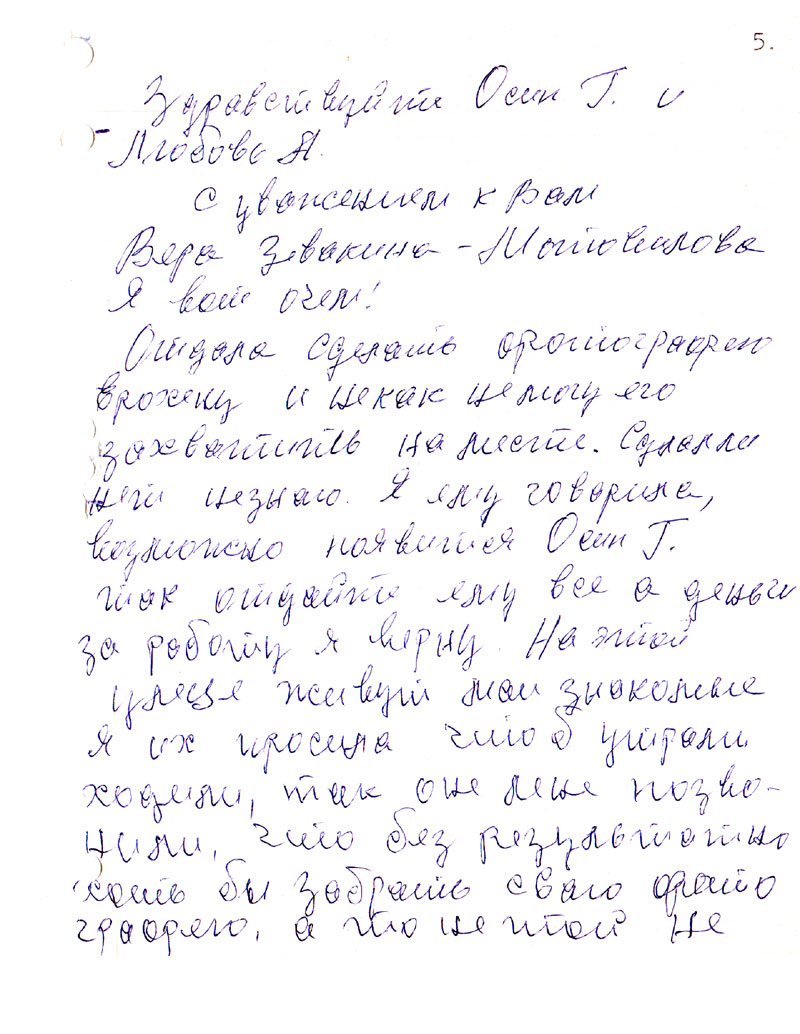 5.
Здравствуйте Осип Г. и
Любовь А.
С уважением к Вам
Вера Звакина-Мотовилова
Я вот очем!
Отдала сделать фотографею
врохену и некак немогу его
захватить на месте. Сделали
нет незнаю. Я ему говорила,
возможно появится Осип Г.
так отдайте ему все а деньги
за работу я верну. На этой
улеце живут маи знакомые
я их просила чтоб утрами
ходили, так оне мене позво-
нили, что без результатно
хоть бы забрать сваю фото
графею, а то не той не